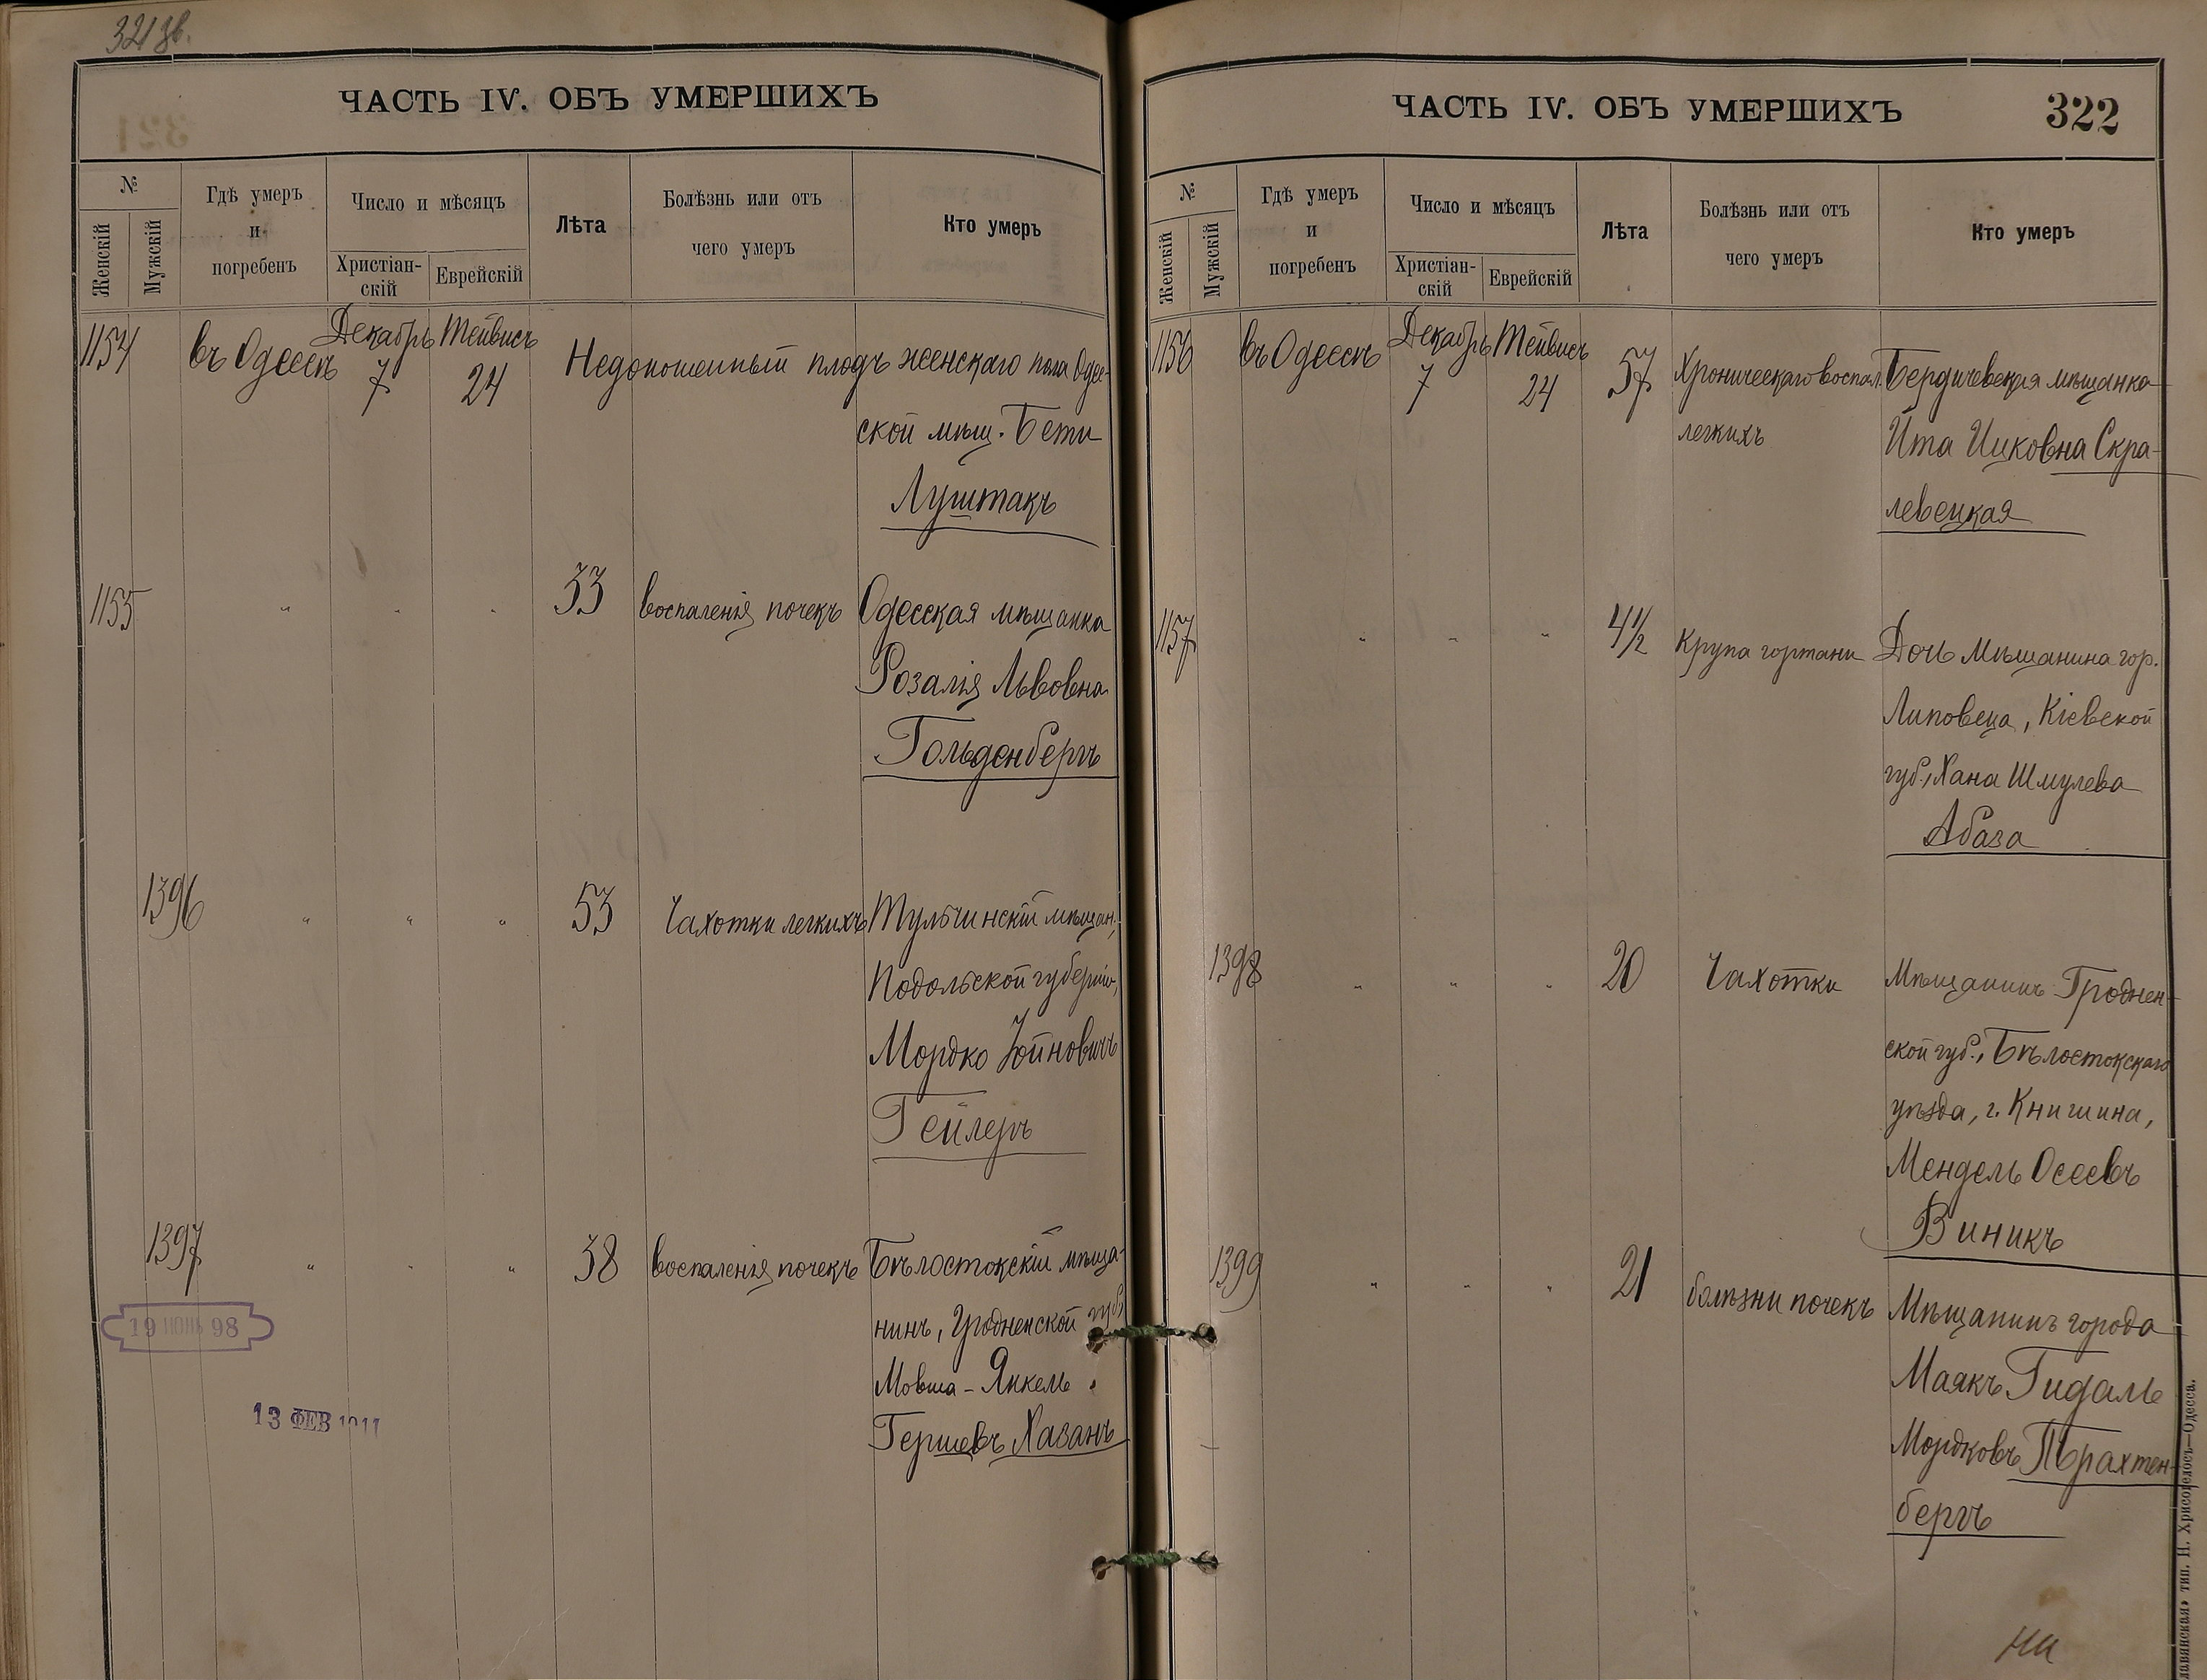 321 зв.
ЧАСТЬ IV. ОБЪ УМЕРШИХЪ
№
Женскій
Мужскій
Гдѣ умеръ
и
погребенъ
Число и мѣсяцъ
Христіан-
скій
Еврейскій
Лѣта
Болѣзнь или отъ
чего умеръ
Кто умеръ
1154 въ Одессѣ Декабрь 7 Тейвисъ 24 Недоношенный плодъ женскаго пола Одес-
ской мѣщ. Бети
Луштакъ
1155 " " " 33 воспаленія почекъ Одесская мѣщанка
Розалія Львовна
Гольденбергъ
1396 " " " 53 Чахотки легкихъ Тульчинскій мѣщан.,
Подольской губерніи,
Мордко Іойновичъ
Гейлеръ
1397 " " " 38 воспаленія почекъ Бѣлостокскій мѣща-
нинъ, Гродненской губ.
Мовша-Янкель
Гершевъ Хазанъ
19 ІЮНЬ 98
13 ФЕВ 1911
ЧАСТЬ IV. ОБЪ УМЕРШИХЪ
322
№
Женскій
Мужскій
Гдѣ умеръ
и
погребенъ
Число и мѣсяцъ
Христіан-
скій
Еврейскій
Лѣта
Болѣзнь или отъ
чего умеръ
Кто умеръ
1156 въ Одессѣ Декабрь 7 Тейвисъ 24 57 Хроническаго воспал. Бердичевская мѣщанка
легкихъ Ита Ицковна Скра-
левецкая
1157 " " " 4½ Крупа гортани Дочь мѣщанина гор.
Липовеца, Кіевской
губ., Хана Шмулева
Абаза
1398 " " " 20 Чахотки Мѣщанинъ Гроднен-
ской губ., Бѣлостокскаго
уѣзда, г. Книшина,
Мендель Осеевъ
Виникъ
1399 " " " 21 болѣзни почекъ Мѣщанинъ города
Маякъ Гидаль
Мордковъ Трахтен-
бергъ
ни
лавянская» тип. Н. Хрисогелосъ—Одесса.